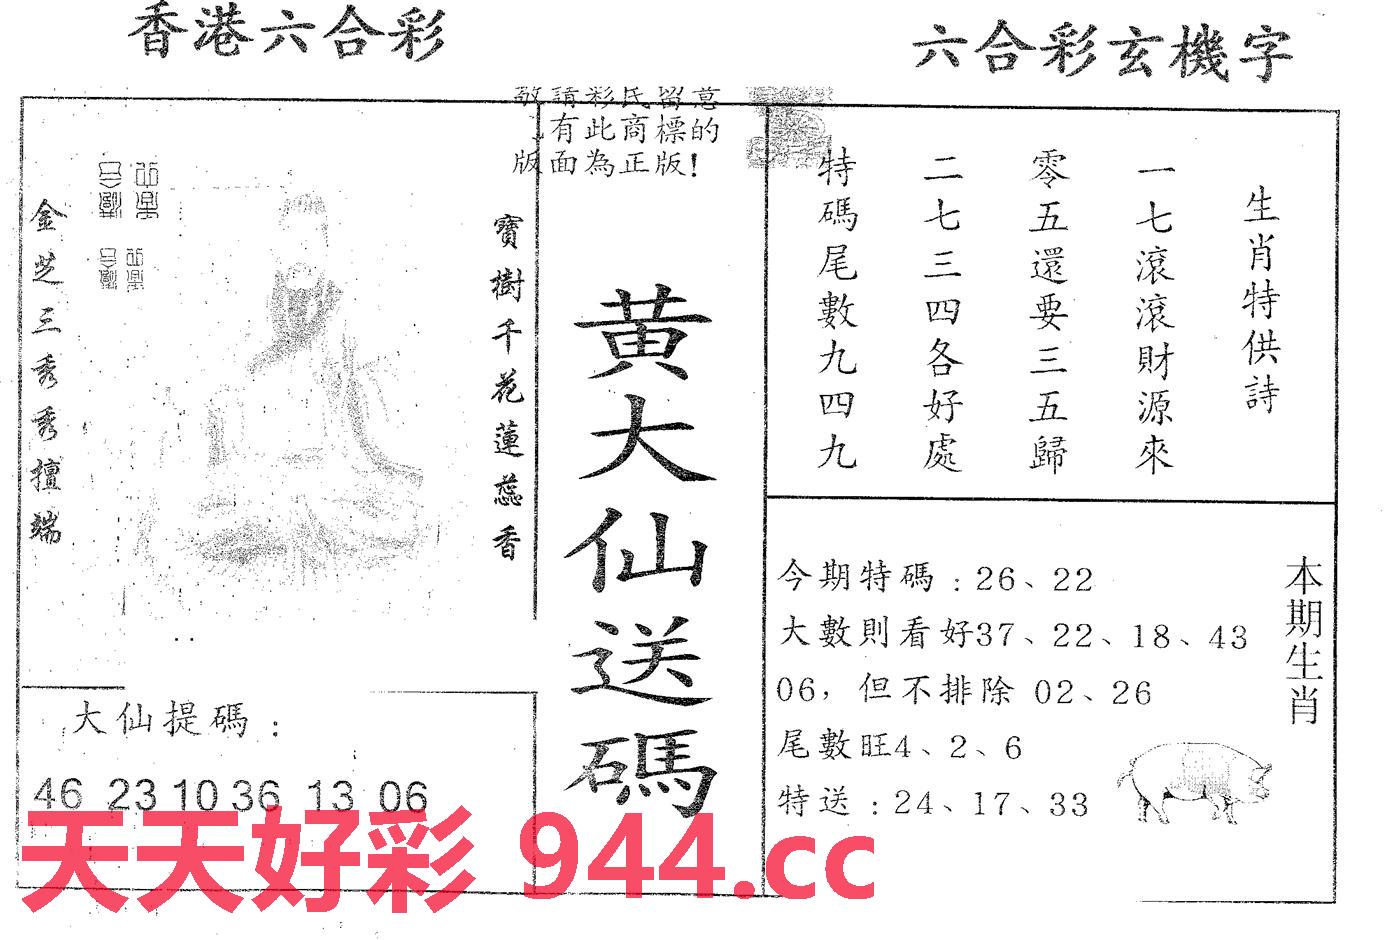 香港六合彩
六合彩玄機字
敬請彩民留意
有此商標的
版面為正版!
金芝三秀秀擅端
寶樹千花蓮蕊香
黄大仙送碼
生肖特供詩
一七滾滾財源來
零五還要三五歸
二七三四各好處
特碼尾數九四九
大仙提碼:
46 23 10 36 13 06
今期特碼:26、22
大數則看好37、22、18、43
06，但不排除 02、26
尾數旺4、2、6
特送:24、17、33
本期生肖
天天好彩 944.cc